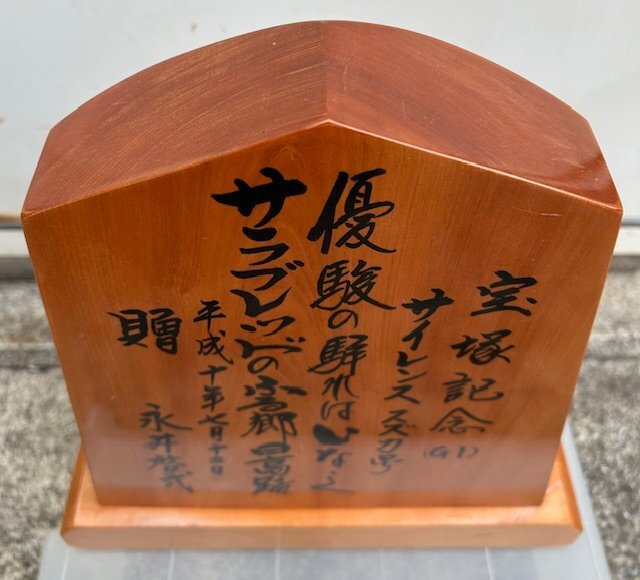 宝塚記念(G1)
サイレンススズカ号
優駿の れはいなゝく
サラブレッドの 郷日高路
平成十年七月十二日
贈
永井啓弐